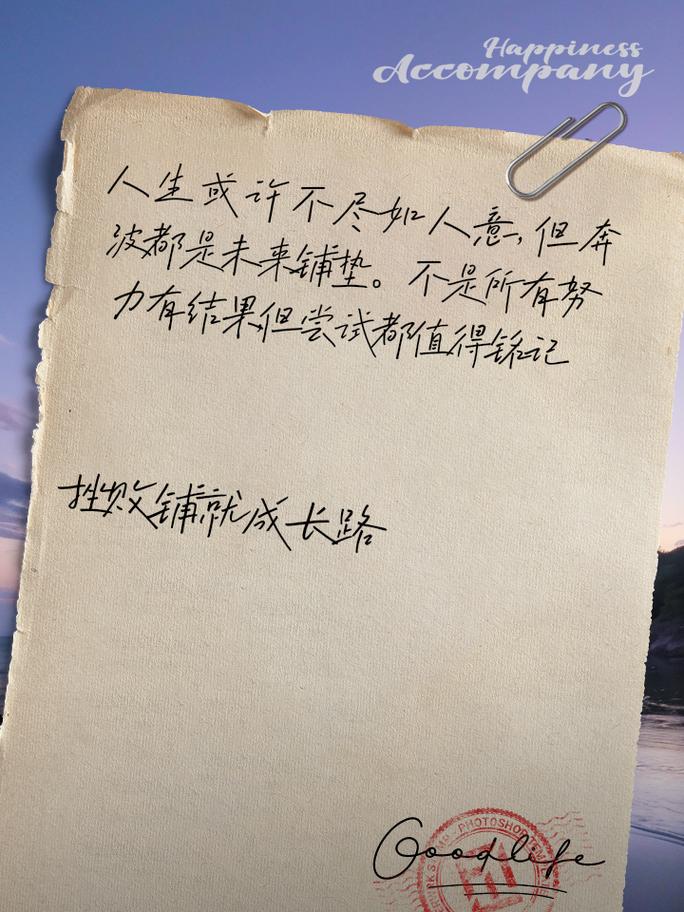 Happiness
Accompany
人生或许不尽如人意,但奔
波都是未来铺垫。不是所有努
力有结果,但尝试都值得铭记
挫败铺就成长路
PHOTOSHOP
Goodlife